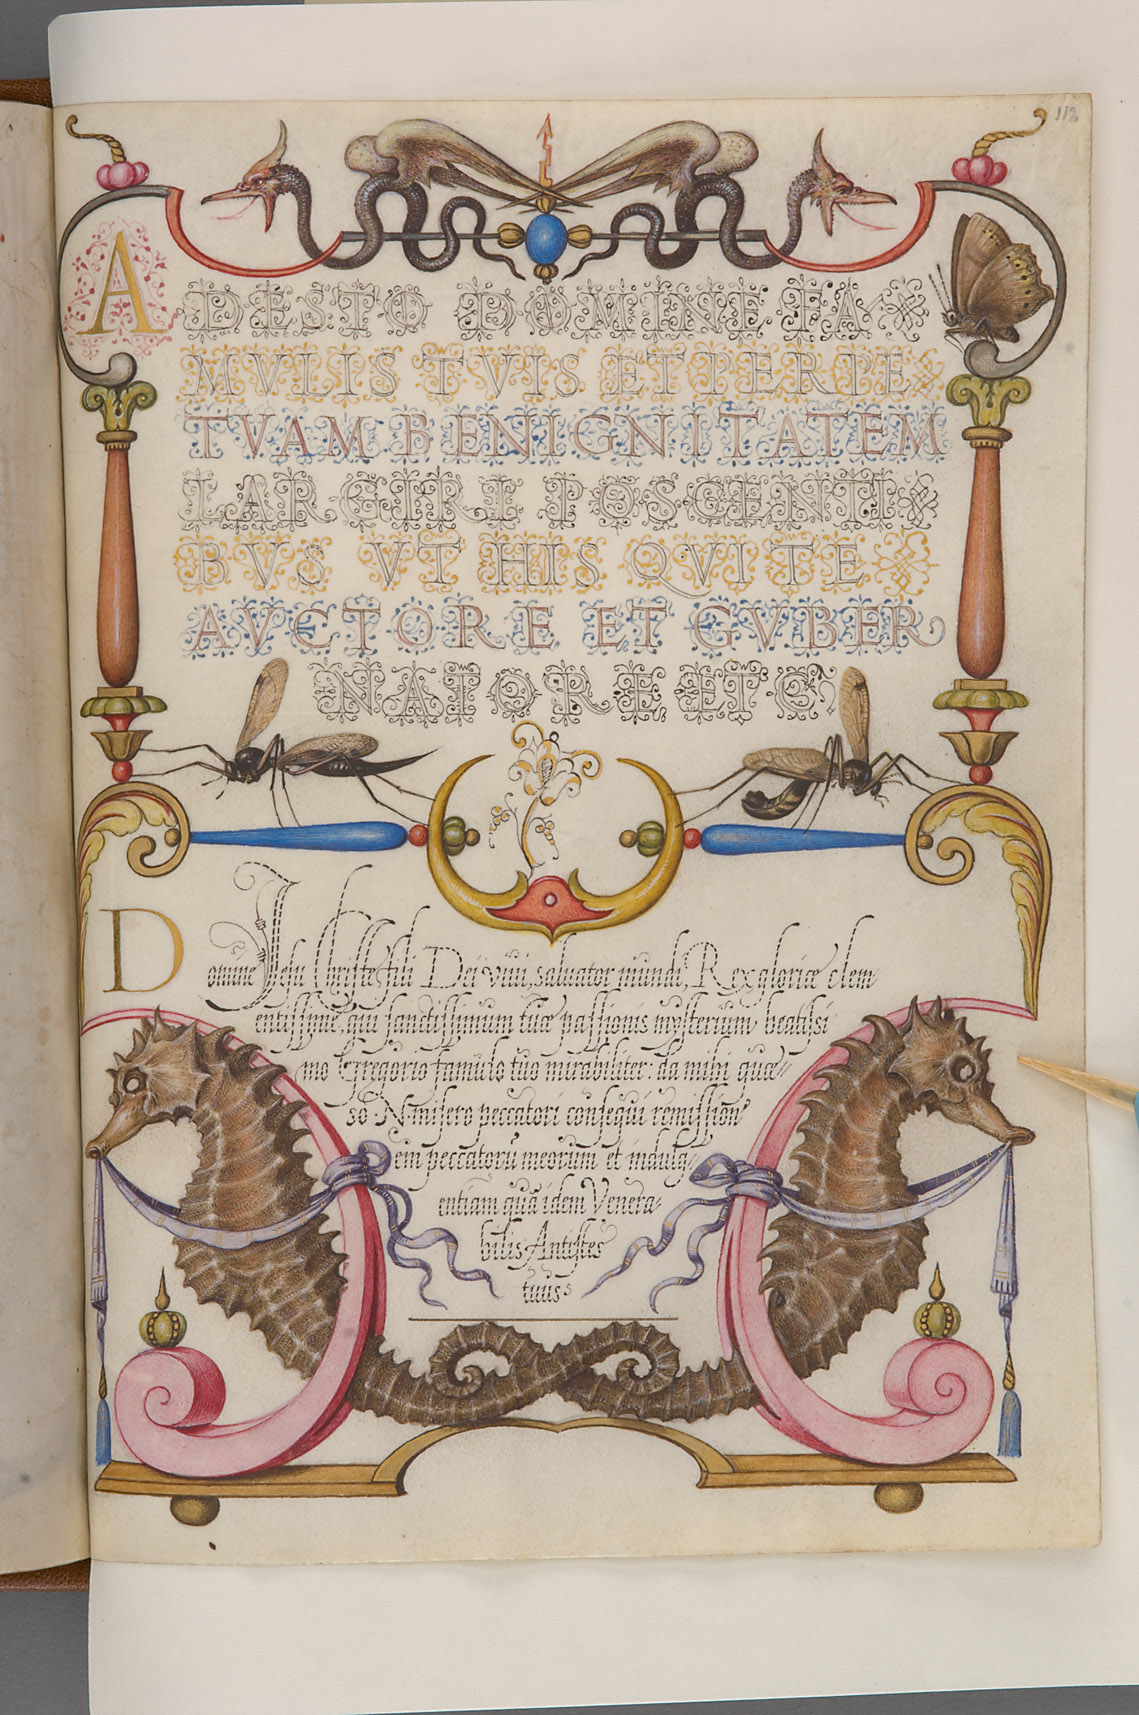 112
ADESTO DOMINE FA
MVLIS TVIS ET PERPE
TVAM BENIGNITATEM
LARGIRE POSCENTI
BVS VT HIS QVI TE
AVCTORE ET GVBER
NATORE ETC
Domine Jesu Christe fili Dei viui, saluator mundi, Rex gloriæ clem-
entissime, qui sanctissimum tuæ passionis mysterium beatissi
mo Gregorio famulo tuo mirabiliter: da mihi quæ-
so N misero peccatori consequi remission
em peccatorũ meorum et indulg-
entiam quã idem Venera-
bilis Antistes
tuus